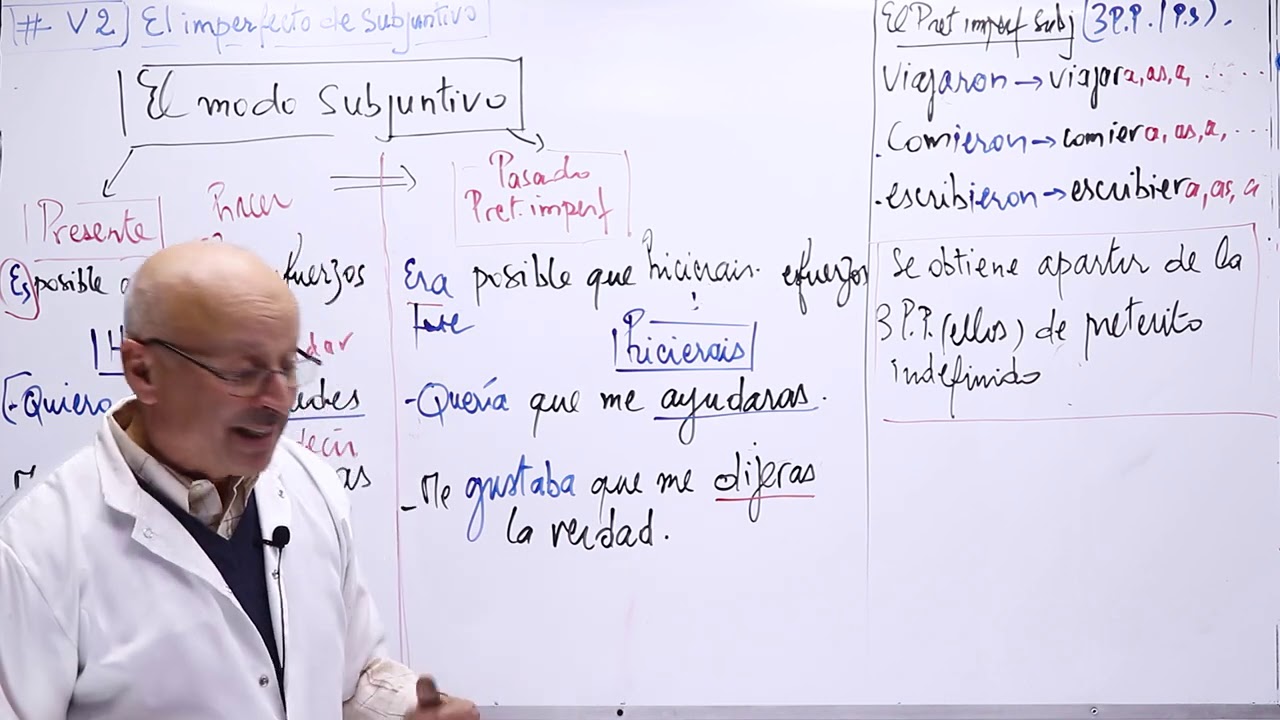 # V2) El imperfecto de subjuntivo
El modo subjuntivo
Presente
hacer
Pasado
Pret. imperf
Es posible
fuerzos
dar
- Quiero
udes
decir
as
Era posible que hicierais. efuerzos
fue
hicierais
- Quería que me ayudaras.
- Me gustaba que me dijeras
la verdad.
El Pret imperf subj (3P.P. / P.s).
Viajaron → viajara, as, a, .....
. Comieron → comiera, as, a, ....
. escribieron → escribiera, as, a
Se obtiene apartir de la
3 P.P. (ellos) de preterito
indefinido